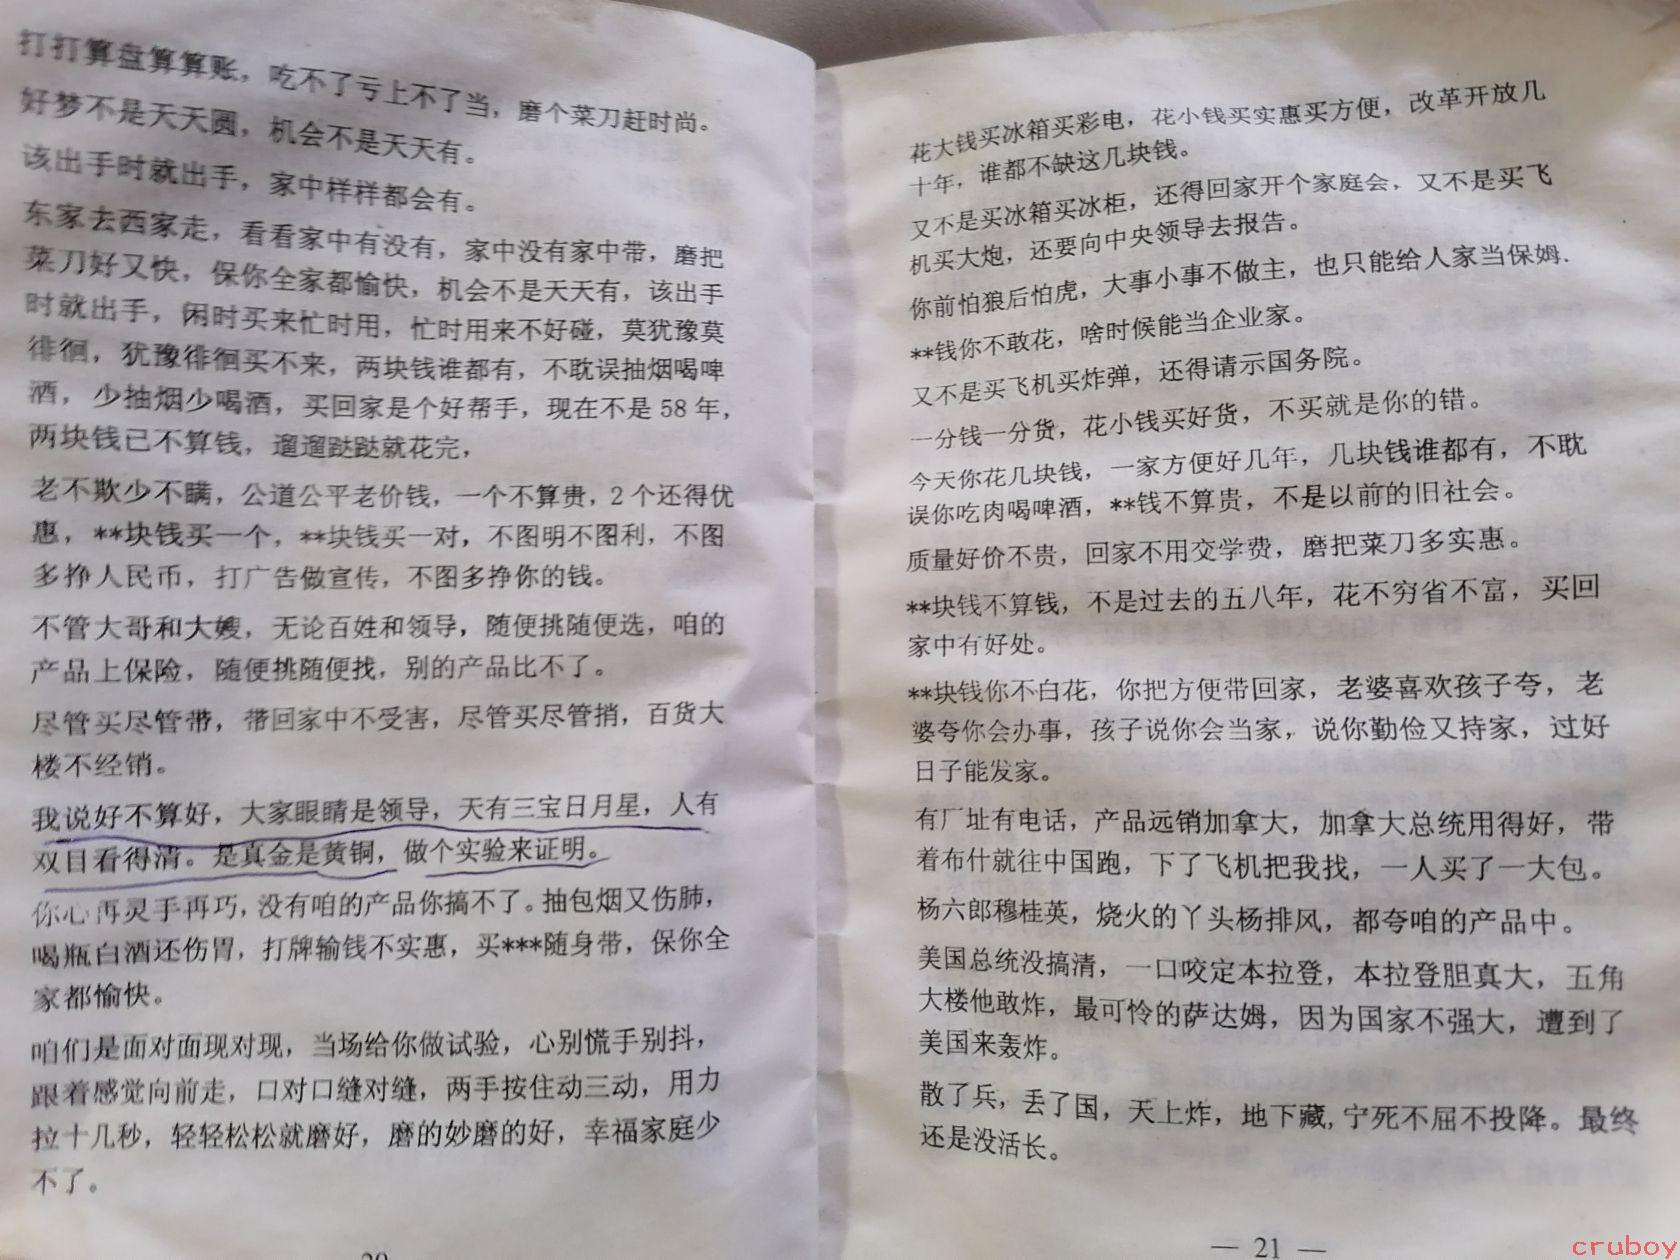 打打算盘算算账，吃不了亏上不了当，磨个菜刀赶时尚。
好梦不是天天圆，机会不是天天有。
该出手时就出手，家中样样都会有。
东家去西家走，看看家中有没有，家中没有家中带，磨把
菜刀好又快，保你全家都愉快，机会不是天天有，该出手
时就出手，闲时买来忙时用，忙时用来不好碰，莫犹豫莫
徘徊，犹豫徘徊买不来，两块钱谁都有，不耽误抽烟喝啤
酒，少抽烟少喝酒，买回家是个好帮手，现在不是 58 年，
两块钱已不算钱，遛遛跶跶就花完，
老不欺少不瞒，公道公平老价钱，一个不算贵，2 个还得优
惠，**块钱买一个，**块钱买一对，不图明不图利，不图
多挣人民币，打广告做宣传，不图多挣你的钱。
不管大哥和大嫂，无论百姓和领导，随便挑随便选，咱的
产品上保险，随便挑随便找，别的产品比不了。
尽管买尽管带，带回家中不受害，尽管买尽管捎，百货大
楼不经销。
我说好不算好，大家眼睛是领导，天有三宝日月星，人有
双目看得清。是真金是黄铜，做个实验来证明。
你心再灵手再巧，没有咱的产品你搞不了。抽包烟又伤肺，
喝瓶白酒还伤胃，打牌输钱不实惠，买***随身带，保你全
家都愉快。
咱们是面对面现对现，当场给你做试验，心别慌手别抖，
跟着感觉向前走，口对口缝对缝，两手按住动三动，用力
拉十几秒，轻轻松松就磨好，磨的妙磨的好，幸福家庭少
不了。
20
花大钱买冰箱买彩电，花小钱买实惠买方便，改革开放几
十年，谁都不缺这几块钱。
又不是买冰箱买冰柜，还得回家开个家庭会，又不是买飞
机买大炮，还要向中央领导去报告。
你前怕狼后怕虎，大事小事不做主，也只能给人家当保姆.
**钱你不敢花，啥时候能当企业家。
又不是买飞机买炸弹，还得请示国务院。
一分钱一分货，花小钱买好货，不买就是你的错。
今天你花几块钱，一家方便好几年，几块钱谁都有，不耽
误你吃肉喝啤酒，**钱不算贵，不是以前的旧社会。
质量好价不贵，回家不用交学费，磨把菜刀多实惠。
**块钱不算钱，不是过去的五八年，花不穷省不富，买回
家中有好处。
**块钱你不白花，你把方便带回家，老婆喜欢孩子夸，老
婆夸你会办事，孩子说你会当家，说你勤俭又持家，过好
日子能发家。
有厂址有电话，产品远销加拿大，加拿大总统用得好，带
着布什就往中国跑，下了飞机把我找，一人买了一大包。
杨六郎穆桂英，烧火的丫头杨排风，都夸咱的产品中。
美国总统没搞清，一口咬定本拉登，本拉登胆真大，五角
大楼他敢炸，最可怜的萨达姆，因为国家不强大，遭到了
美国来轰炸。
散了兵，丢了国，天上炸，地下藏,宁死不屈不投降。最终
还是没活长。
— 21 —
cruboy